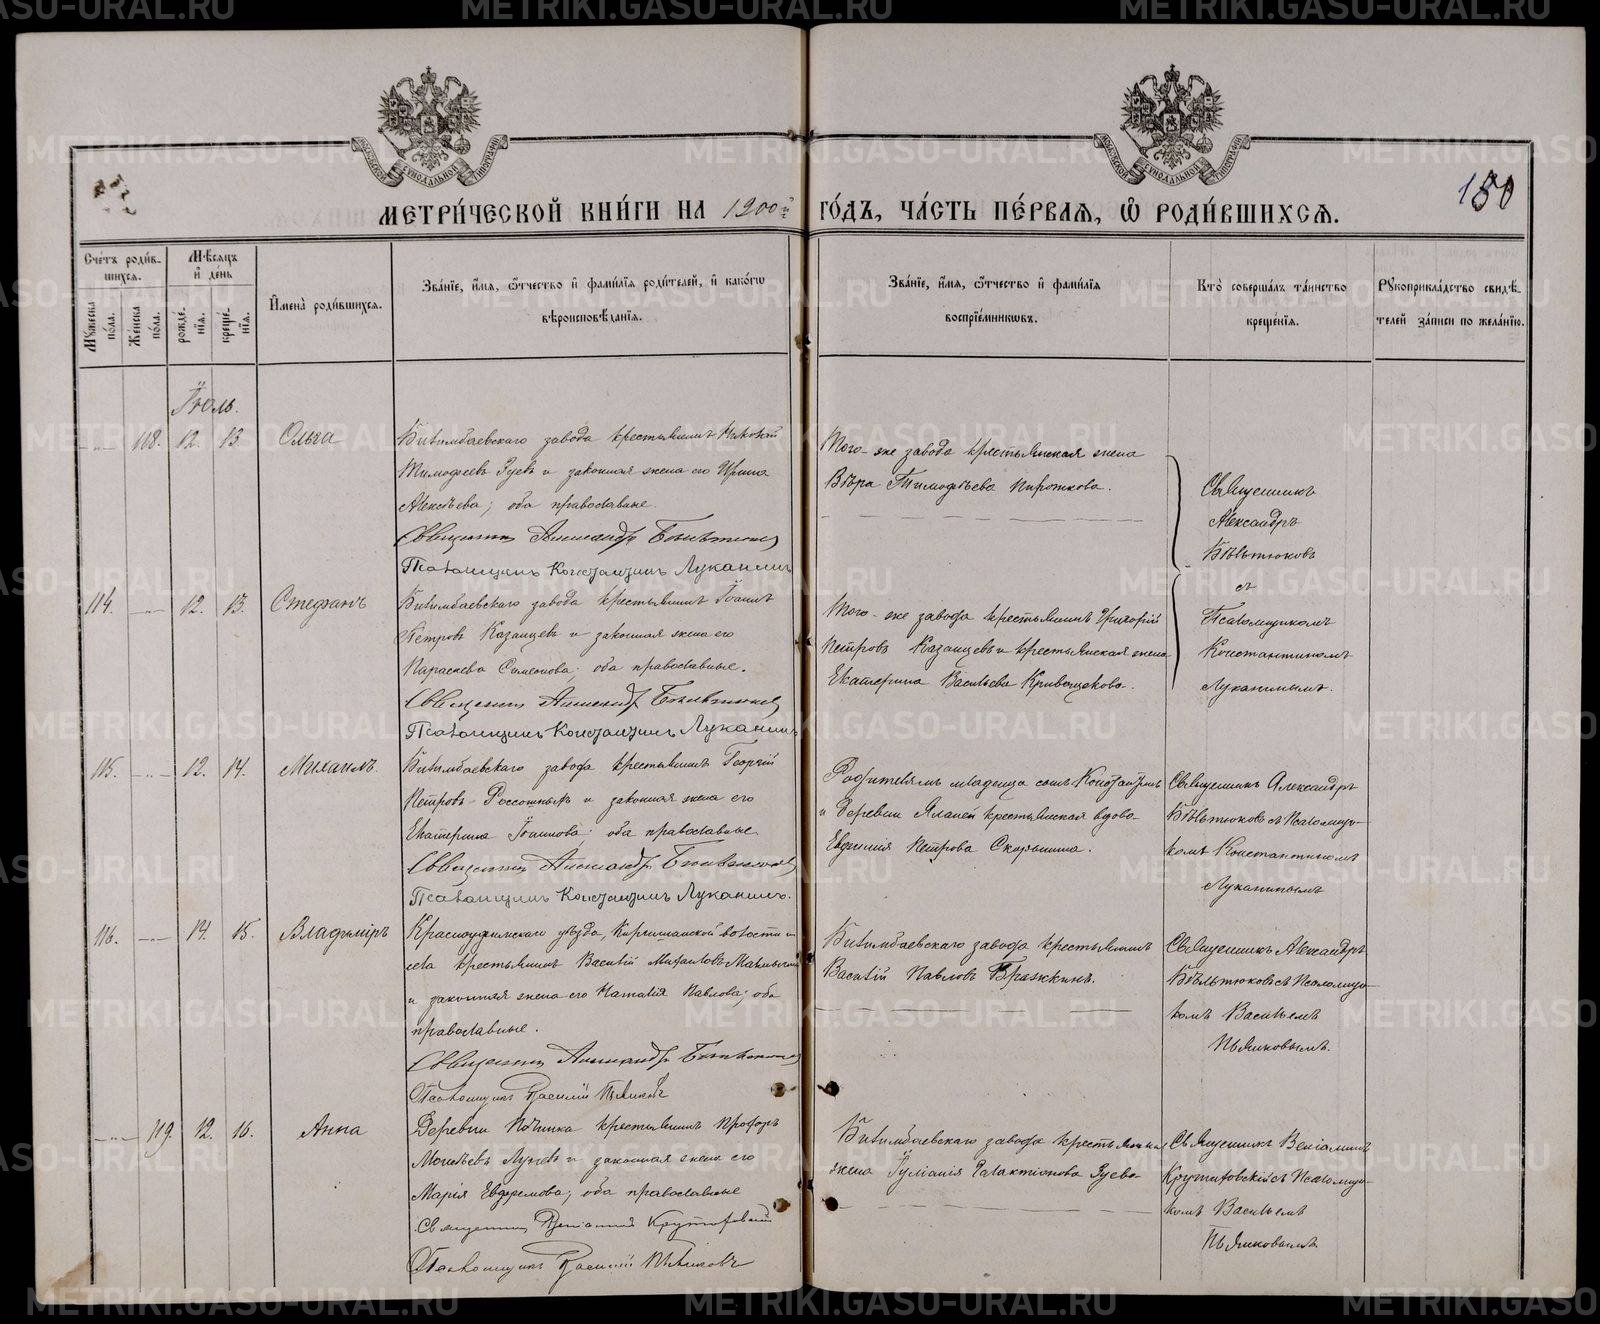 150
МЕТРИЧЕСКОЙ КНИГИ НА 1900й ГОДЪ, ЧАСТЬ ПЕРВАЯ, Ѡ РОДИВШИХСЯ.
Счетъ родив-
шихся.
Мужеска пола.
Женска пола.
Мѣсяцъ
и день
рожде-
нія.
креще-
нія.
Имена родившихся.
Званіе, имя, ѿчество и фамилія родителей, и какогѡ
вѣроисповѣданія.
Званіе, имя, ѿчество и фамилія
воспріемниковъ.
Кто совершалъ таинство
крещенія.
Рукоприкладство свидѣ-
телей записи по желанію.
Іюль.
118. 12. 13. Ольга
Билимбаевскаго завода крестьянинъ Николай
Тимофеевъ Зуевъ и законная жена его Ирина
Алексѣева; оба православные.
Священникъ Александръ Бѣльтюковъ
Псаломщикъ Константинъ Луканинъ
Того-же завода крестьянская жена
Вѣра Тимофѣева Пироткова.
Священникъ
Александръ
Бѣльтюковъ
съ
Псаломщикомъ
Константиномъ
Луканинымъ.
114. 12. 13. Стефанъ
Билимбаевскаго завода крестьянинъ Іоаннъ
Петровъ Казанцевъ и законная жена его
Параскева Симеонова; оба православные.
Священникъ Александръ Бѣльтюковъ
Псаломщикъ Константинъ Луканинъ
Того-же завода крестьянинъ Григорій
Петровъ Казанцевъ и крестьянская жена
Екатерина Васильева Кривощекова.
115. 12. 14. Михаилъ.
Билимбаевскаго завода крестьянинъ Георгій
Петровъ и законная жена его
Екатерина Іоаннова; оба православные.
Священникъ Александръ Бѣльтюковъ
Псаломщикъ Константинъ Луканинъ.
Родителямъ младенца сынъ Константинъ
и деревни крестьянская вдова
Евфимія Петрова Скорынина.
Священникъ Александръ
Бѣльтюковъ съ Псаломщи-
комъ Константиномъ
Луканинымъ
116. 14. 15. Владиміръ
Красноуфимскаго уѣзда, Киргишанской волости и
села крестьянинъ Василій Михаиловъ
и законная жена его Наталія Павлова; оба
православные.
Священникъ Александръ Бѣльтюковъ
Псаломщикъ Василій Пьянковъ
Билимбаевскаго завода крестьянинъ
Василій Павловъ Бражкинъ.
Священникъ Александръ
Бѣльтюковъ съ Псаломщи-
комъ Васильемъ
Пьянковымъ.
119. 12. 16. Анна
Деревни Починка крестьянинъ
Моисѣевъ и законная жена его
Марія Евфремова; оба православные
Священникъ Веніаминъ Крутиховскій
Псаломщикъ Василій Пьянковъ
Билимбаевскаго завода крестьянская
жена Іуліанія Галактіонова Зуева.
Священникъ Веніаминъ
Крутиховскій съ Псаломщи-
комъ Васильемъ
Пьянковымъ
METRIKI.GASO-URAL.RU